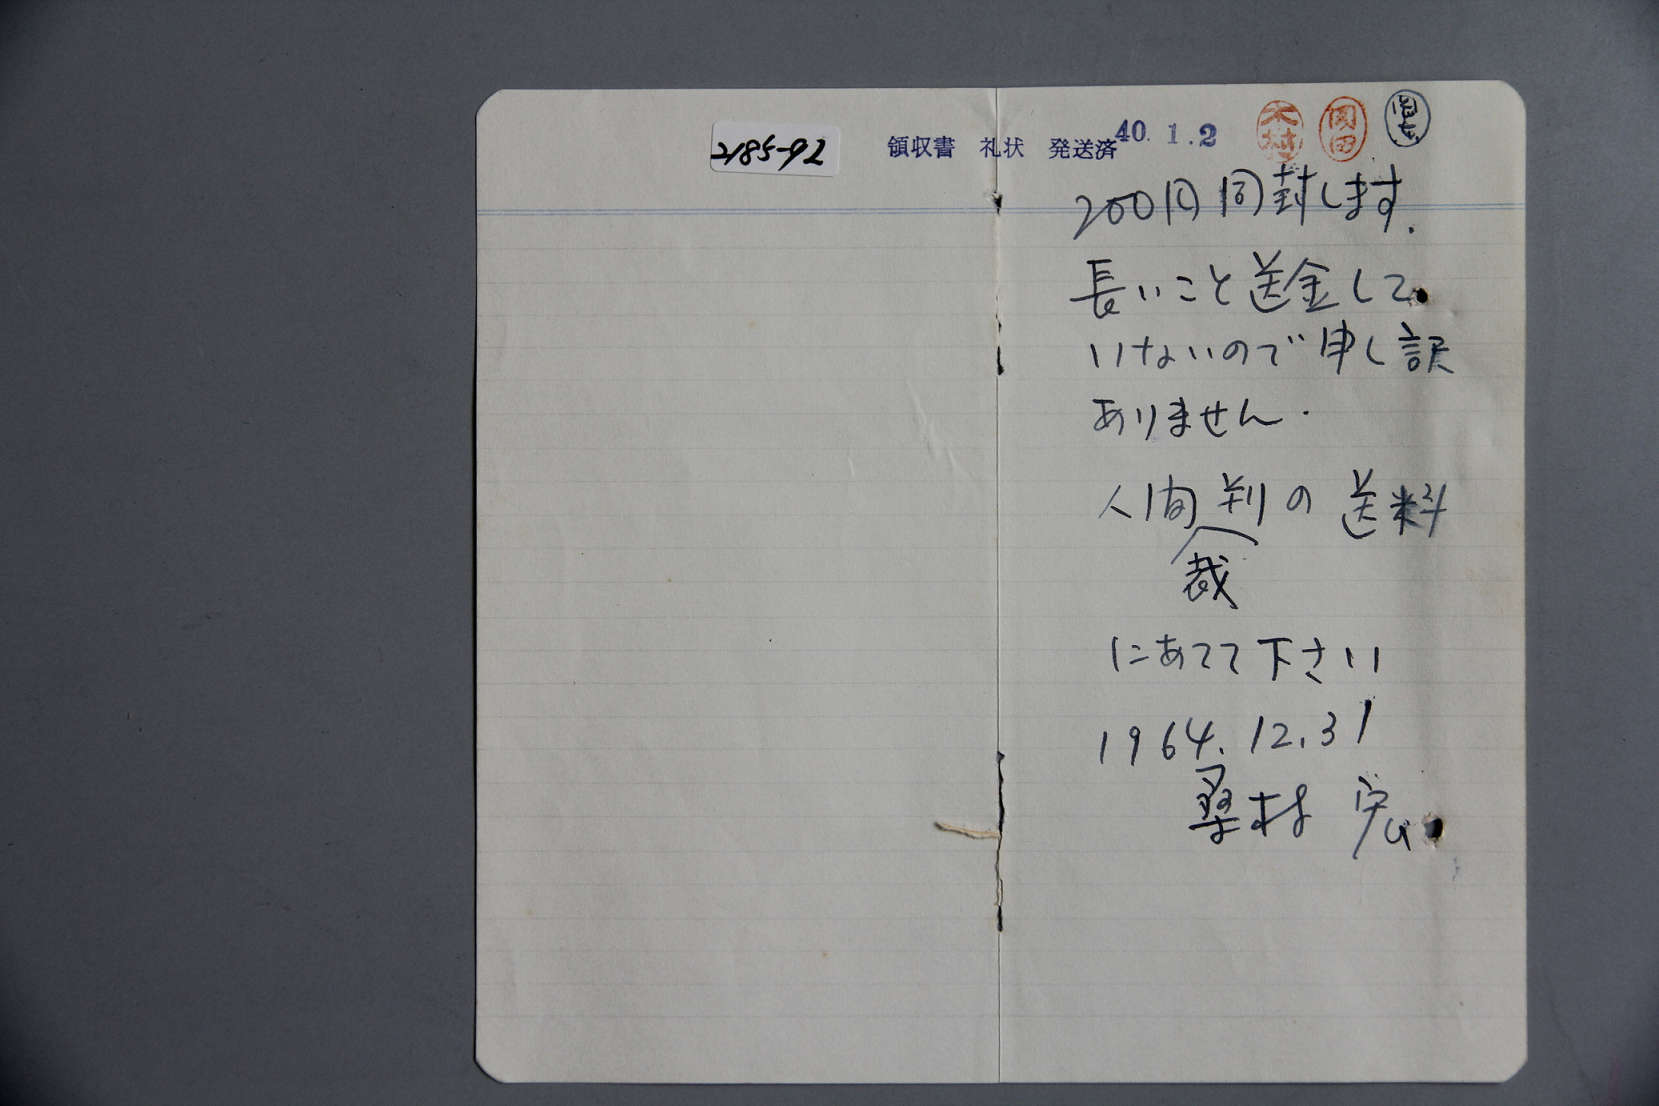 2185-92
領収書 礼状 発送済 40.1.2
木村
岡田
200円同封します.
長いこと送金して
いないので申し訳
ありません.
人間裁判の送料
にあてて下さい
1964.12.31
桑村 宏